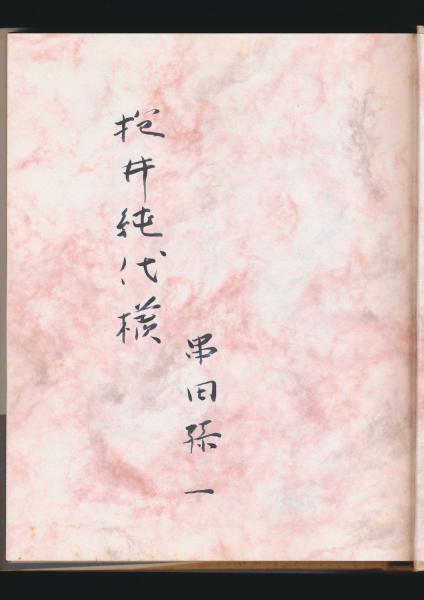 井純代様
串田孫一